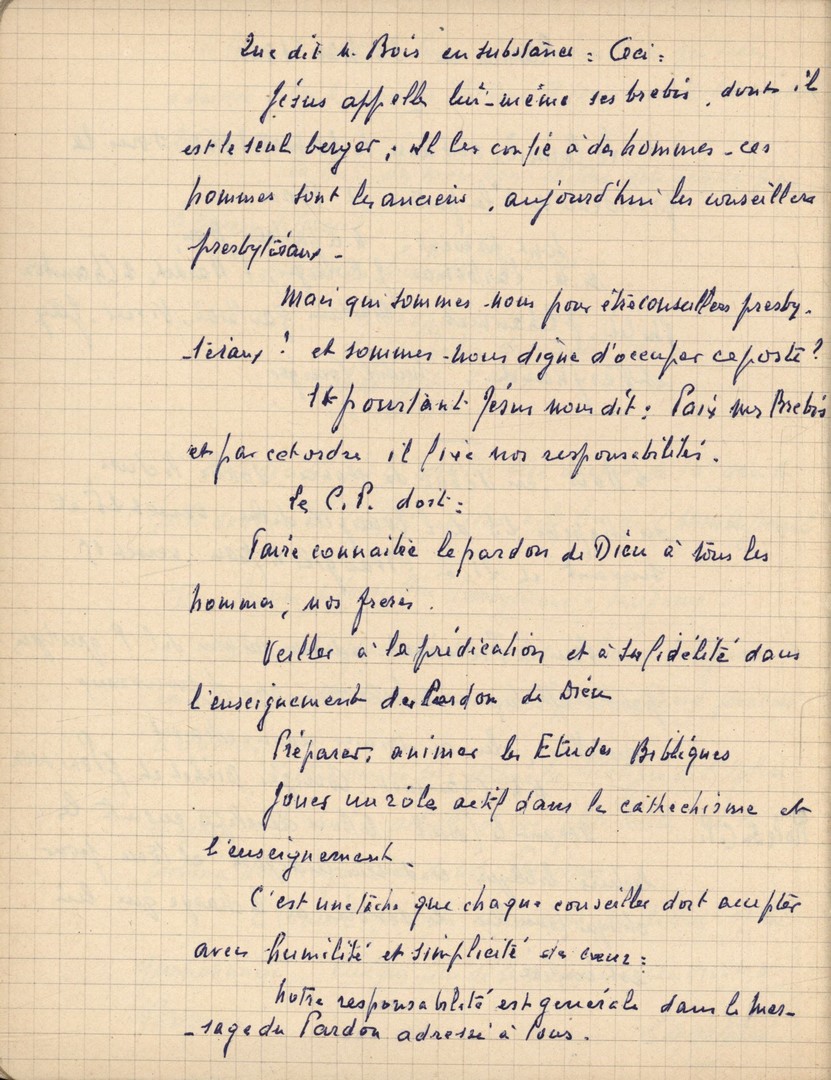 Que dit M. Bois en substance : Ceci :
Jésus appelle lui-même ses brebis, dont il
est le seul berger ; Il les confie à des hommes - ces
hommes sont les anciens, aujourd'hui les conseillers
presbytéraux -
Mais qui sommes-nous pour être conseillers presby-
-téraux ? et sommes-nous digne d'occuper ce poste ?
Et pourtant Jésus nous dit : Paix mes Brebis
et par cet ordre il fixe nos responsabilités.
Le C.P. doit :
Faire connaître le pardon de Dieu à tous les
hommes, nos frères.
Veiller à la prédication et à sa fidélité dans
l'enseignement du Pardon de Dieu
Préparer, animer les Etudes Bibliques
Jouer un rôle actif dans le cathechisme et
l'enseignement.
C'est une tâche que chaque conseiller doit accepter
avec humilité et simplicité de cœur :
Notre responsabilité est générale dans le Mes-
-sage du Pardon adressé à Tous.